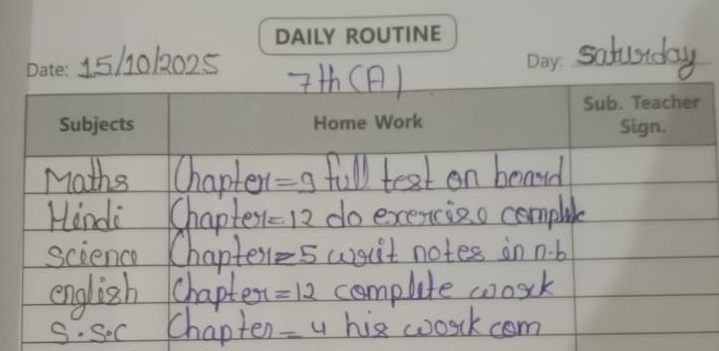 DAILY ROUTINE
Date: 15/10/2025 7th (A) Day: Saturday
Subjects Home Work Sub. Teacher Sign.
Maths Chapter=9 full test on board
Hindi Chapter=12 do exercise complete
Science Chapter=5 writ notes in n.b
english Chapter=12 complete work
S.Sc Chapter=4 his work com